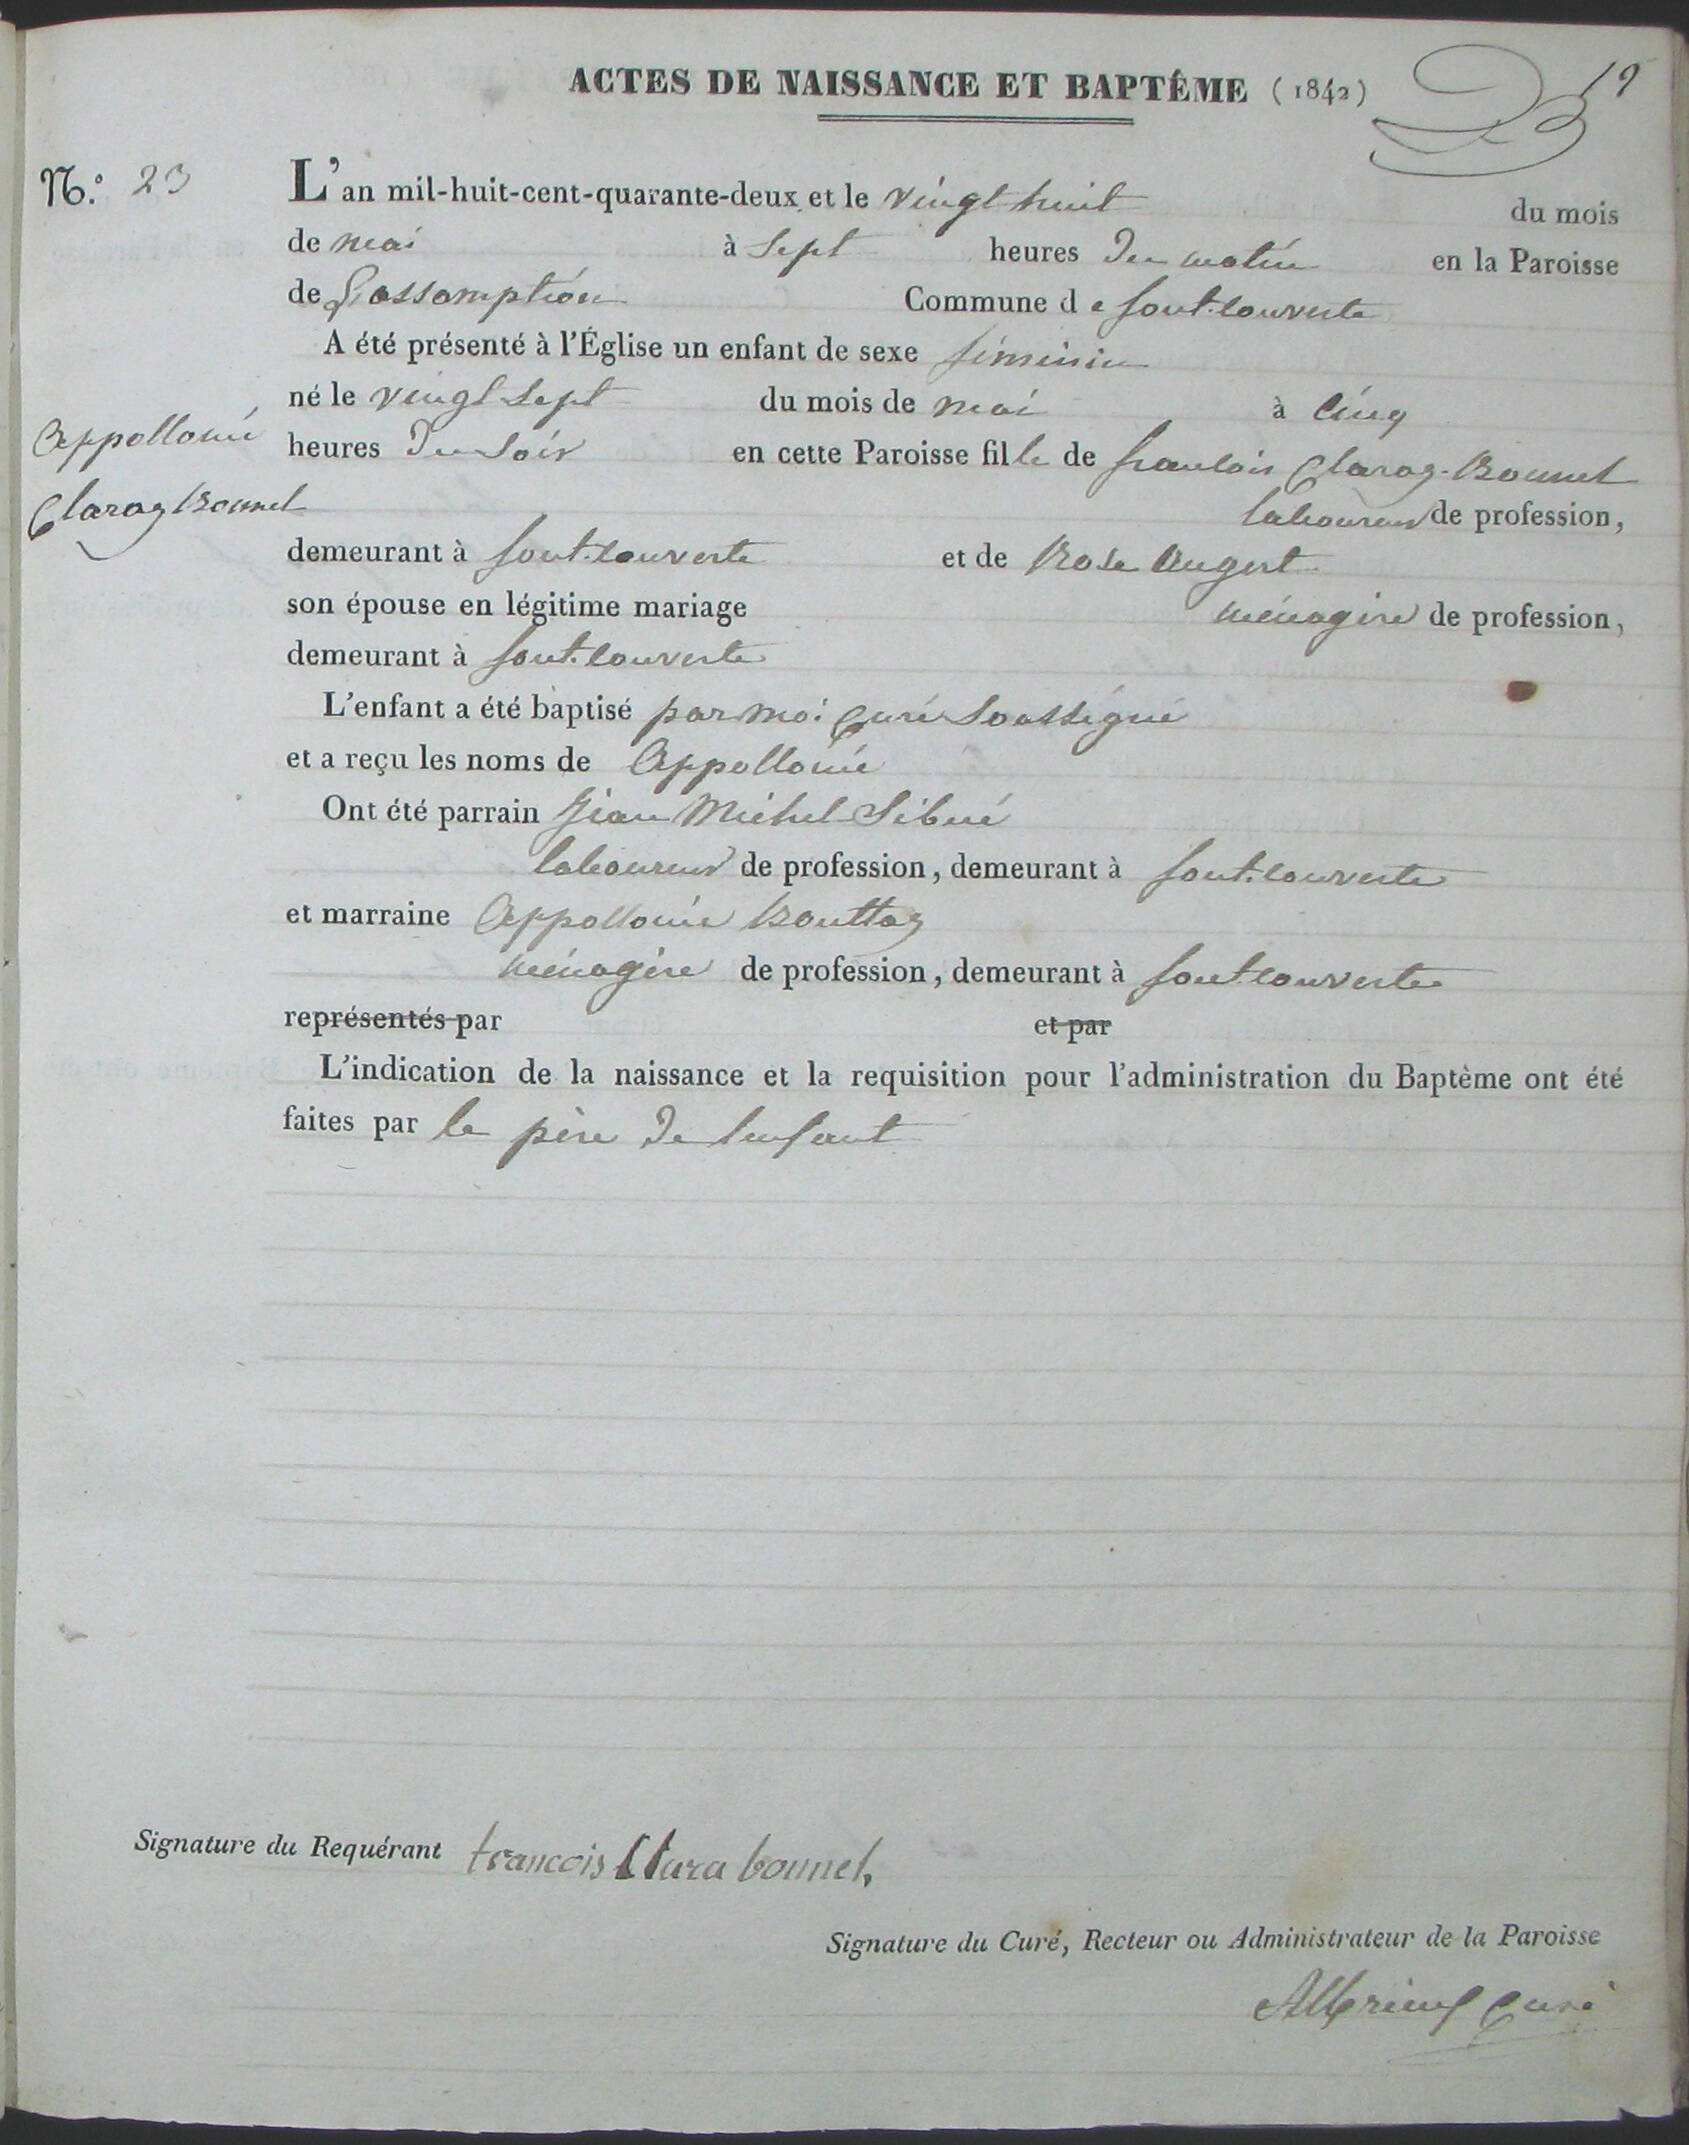 ACTES DE NAISSANCE ET BAPTÊME (1842)
19
N.° 23
L'an mil-huit-cent-quarante-deux et le vingt huit du mois
de mai à sept heures du matin en la Paroisse
de L'assomption Commune de font-couverte
A été présenté à l'Église un enfant de sexe féminin
né le vingt sept du mois de mai à cinq
heures du soir en cette Paroisse fille de francois Claraz-Bonnel
laboureur de profession,
Appollonie
Claraz Bonnel
demeurant à font-couverte et de Rose Augert
son épouse en légitime mariage ménagère de profession,
demeurant à font-couverte
L'enfant a été baptisé par moi Curé Soussigné
et a reçu les noms de Appollonie
Ont été parrain Jean Michel Sibué
laboureur de profession, demeurant à font-couverte
et marraine Appollonie Bouttaz
ménagère de profession, demeurant à font-couverte
représentés par et par
L'indication de la naissance et la requisition pour l'administration du Baptème ont été
faites par le père de l'enfant
Signature du Requérant francois Clara bonnel,
Signature du Curé, Recteur ou Administrateur de la Paroisse
Curé